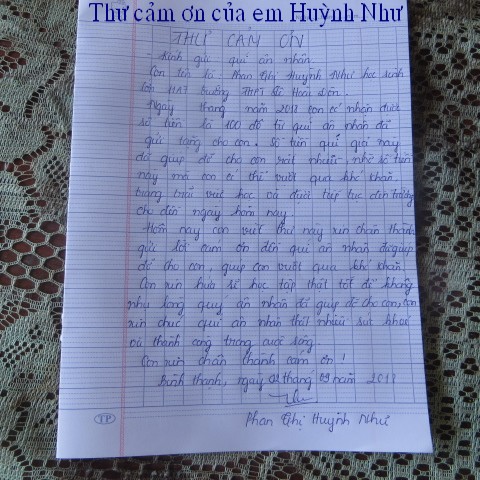 Thư cảm ơn của em Huỳnh Như
THƯ CẢM ƠN
- Kính gửi quí ân nhân
Con tên là: Phan Thị Huỳnh Như học sinh
lớp 11A7 trường THPT
Ngày tháng năm 2018 con có nhận được
số tiền là 100 đô từ quí ân nhân đã
gửi tặng cho con. số tiền quí giá này
đã giúp đỡ cho con rất nhiều, nhờ số tiền
này mà con có thể vượt qua khó khăn
trang trải việc học và được tiếp tục đến trường
cho đến ngày hôm nay.
Hôm nay con viết thư này xin chân thành
gửi lời cảm ơn đến quí ân nhân đã giúp
đỡ cho con, giúp con vượt qua khó khăn.
Con xin hứa sẽ học tập thật tốt để không
phụ lòng quý ân nhân đã giúp đỡ cho con, con
xin chúc quí ân nhân thật nhiều sức khoẻ
và thành công trong cuộc sống.
Con xin chân thành cảm ơn!
Bình thạnh, ngày 02 tháng 09 năm 2018
Phan Thị Huỳnh Như
TP